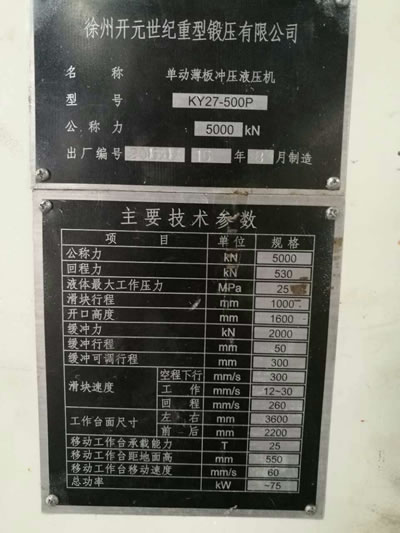 徐州开元世纪重型锻压有限公司
名 称 单动薄板冲压液压机
型 号 KY27-500P
公 称 力 5000 kN
出厂编号 年 8 月制造
主要技术参数
项 目 单位 规格
公称力 kN 5000
回程力 kN 530
液体最大工作压力 MPa 25
滑块行程 mm 1000
开口高度 mm 1600
缓冲力 kN 2000
缓冲行程 mm 50
缓冲可调行程 mm 300
滑块速度 空程下行 mm/s 300
工 作 mm/s 12~30
回 程 mm/s 260
工作台面尺寸 左 右 mm 3600
前 后 mm 2200
移动工作台承载能力 T 25
移动工作台距地面高 mm 550
移动工作台移动速度 mm/s 60
总功率 kW ~75